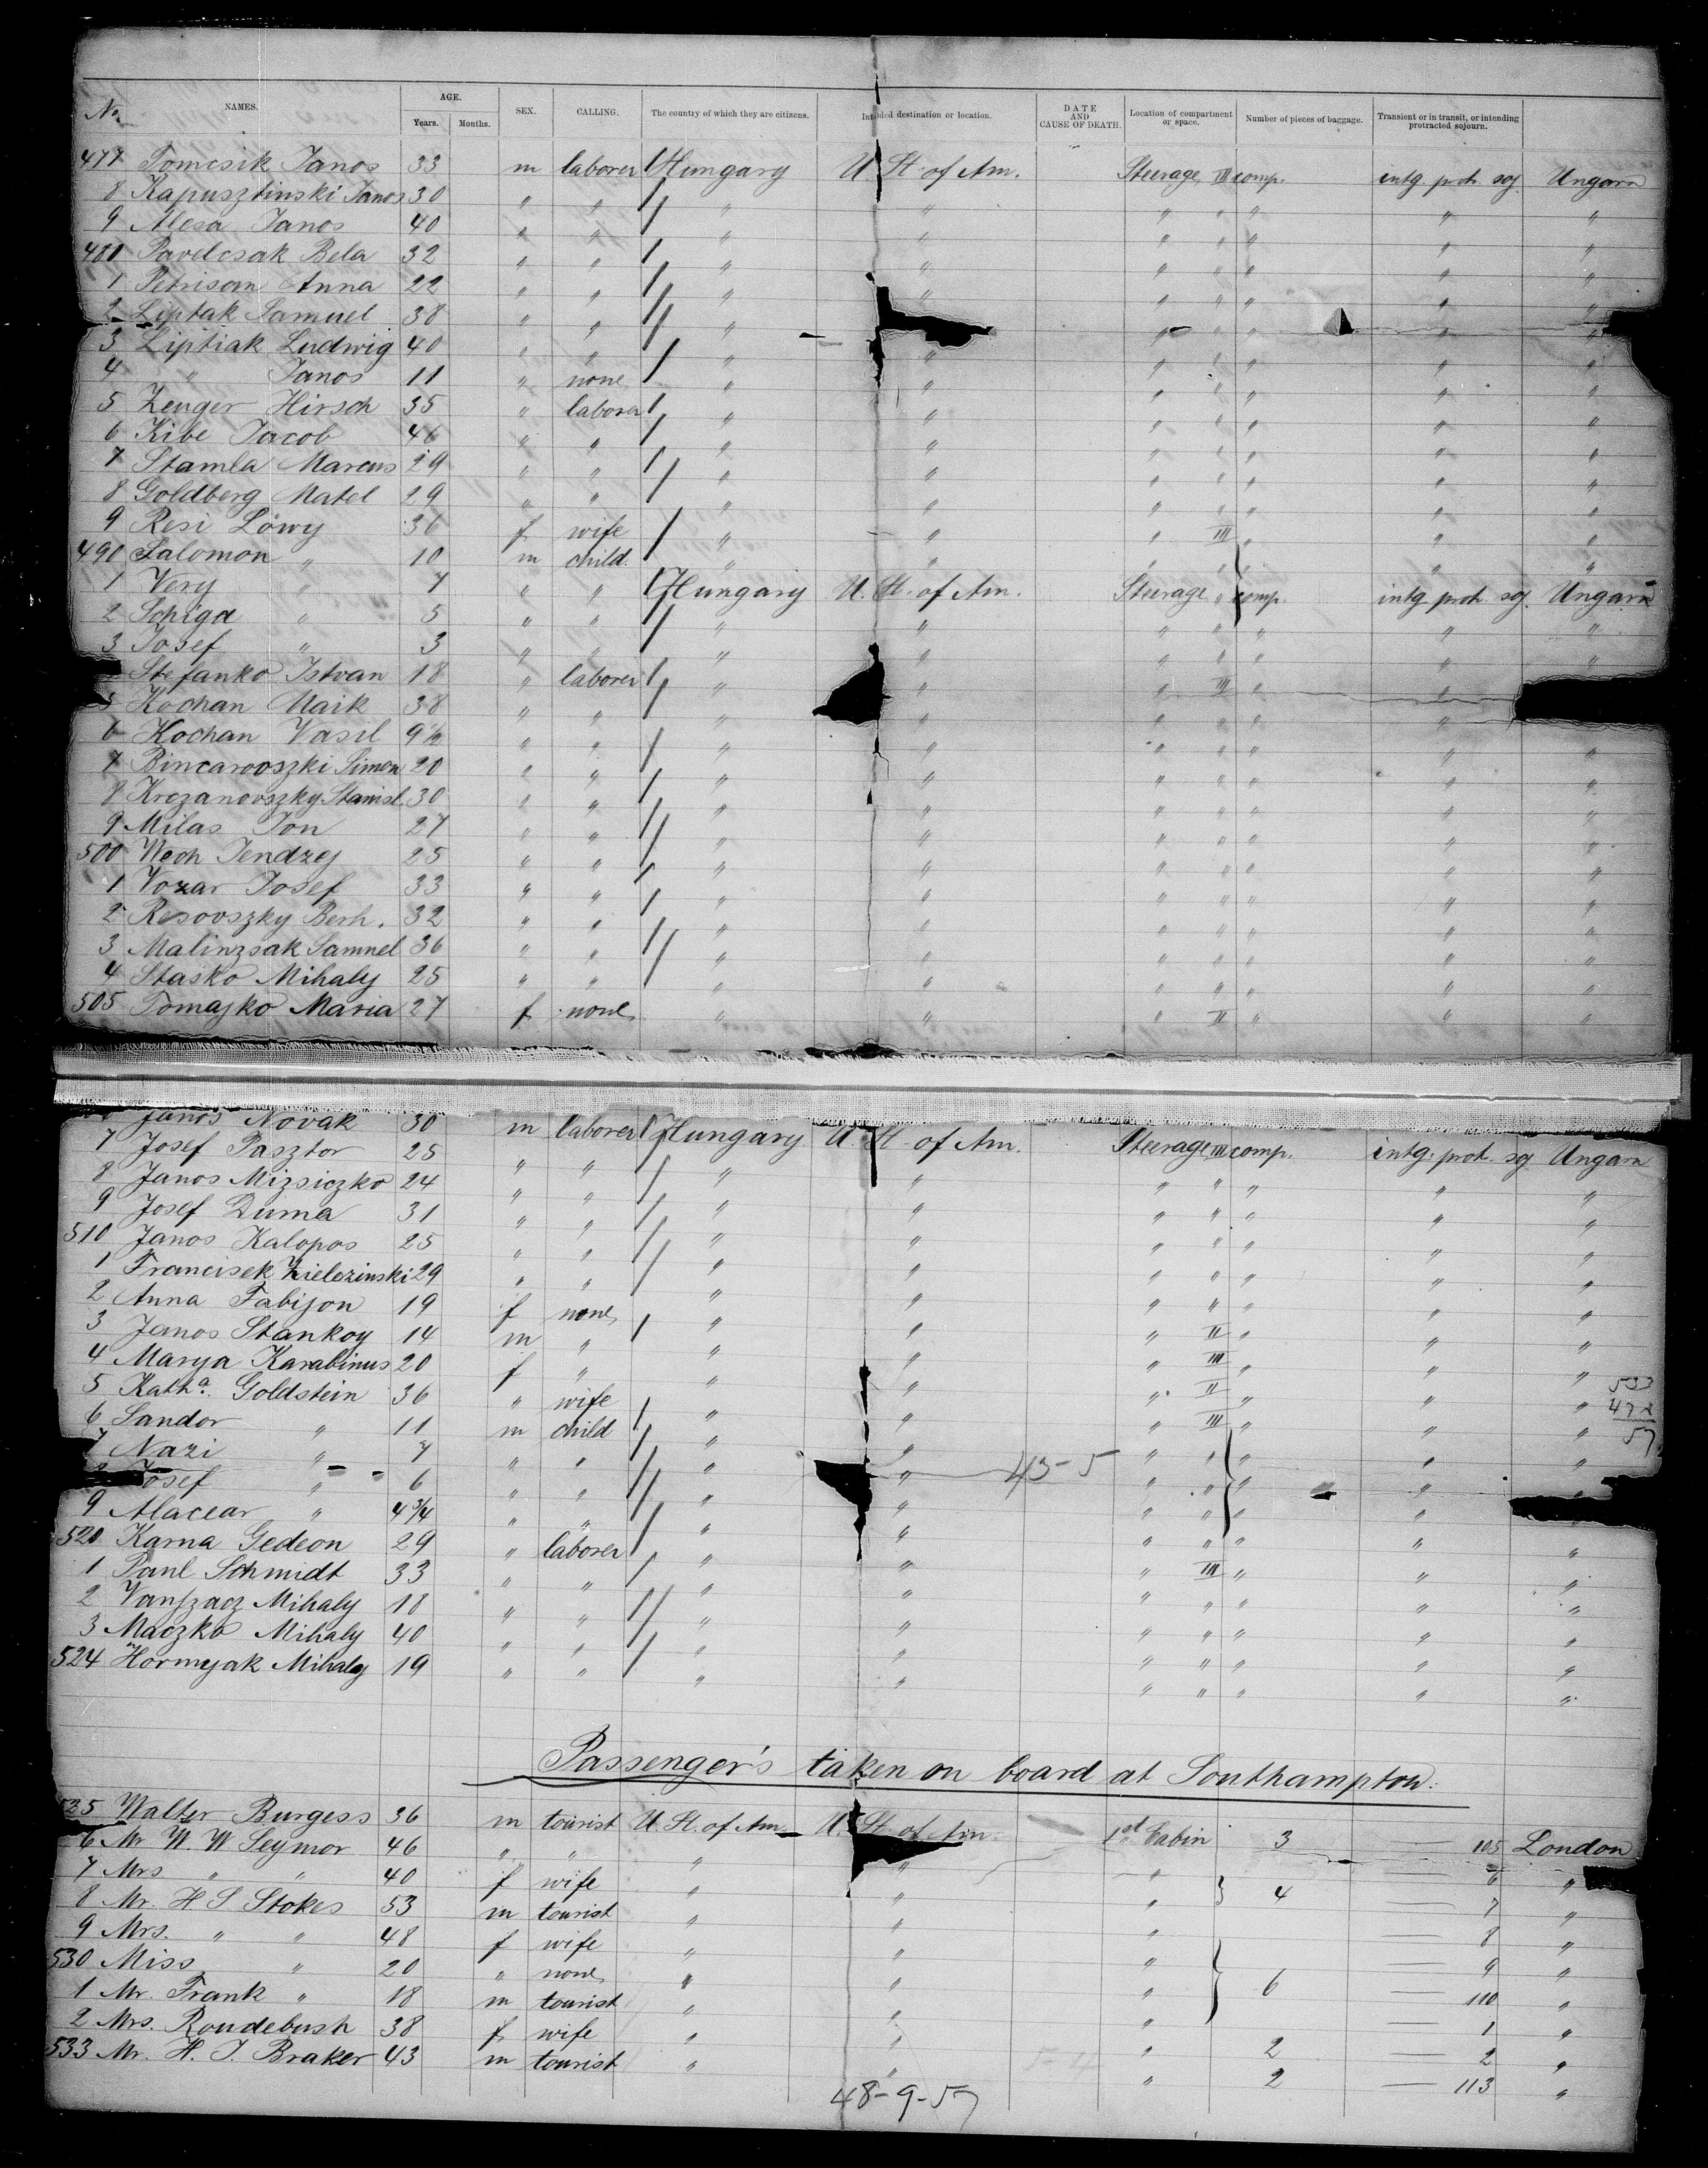 No. NAMES. AGE. Years. Months. SEX. CALLING. The country of which they are citizens. Intended destination or location. DATE AND CAUSE OF DEATH. Location of compartment or space. Number of pieces of baggage. Transient or in transit, or intending protracted sojourn.
477 Tomcsik Janos 33 m laborer Hungary U. St. of Am. Steerage III comp. intg. prot. soj. Ungarn
8 Kapusztinski Janos 30 " " " " " " " " "
9 Mesa Janos 40 " " " " " " " " "
480 Pavelcsak Bela 32 " " " " " " " " "
1 Petrisom Anna 22 " " " " " " " " "
2 Liptak Samuel 38 " " " " " " " " "
3 Liptiak Ludwig 40 " " " " " " " " "
4 " Janos 11 " none " " " " " " "
5 Zenger Hirsch 35 " laborer " " " " " " "
6 Kibe Jacob 46 " " " " " " " " "
7 Stamla Marcus 29 " " " " " " " " "
8 Goldberg Matel 29 " " " " " " " " "
9 Resi Löwy 36 f wife " " " III " " "
490 Salomon " 10 m child. " " " " " " "
1 Very " 7 " " Hungary U. St. of Am. Steerage " comp. intg. prot. soj. Ungarn
2 Schiga " 5 " " " " " " " " "
3 Josef " 3 " " " " " " " " "
Stefanko Istvan 18 " laborer " " " III " " "
5 Kochan Maik 38 " " " " " " " "
6 Kochan Vasil 9½ " " " " " " " " "
7 Bincarovszki Simon 20 " " " " " " " " "
8 Krczanovszky Stanisl. 30 " " " " " " " " "
9 Milas Jon 27 " " " " " " " " "
500 Wech Jendzej 25 " " " " " " " " "
1 Vozar Josef 33 " " " " " " " " "
2 Resovszky Berh. 32 " " " " " " " " "
3 Malinzsak Samuel 36 " " " " " " " " "
4 Stasko Mihaly 25 " " " " " " " " "
505 Tomajko Maria 27 f none " " " II " " "
Janos Novak 30 m laborer Hungary U. St. of Am. Steerage III comp. intg. prot. soj. Ungarn
7 Josef Pasztor 25 " " " " " " " " "
8 Janos Mizsiczko 24 " " " " " " " " "
9 Josef Duma 31 " " " " " " " " "
510 Janos Kalopos 25 " " " " " " " " "
1 Francisek Zielezinski 29 " " " " " " " " "
2 Anna Fabijon 19 f none " " " II " " "
3 Janos Stankoy 14 m " " " " III " " "
4 Marya Karabinus 20 f " " " " II " " "
5 Katha. Goldstein 36 " wife " " " III " " "
533
472
57
6 Sandor " 11 m child " " " " " " "
7 Nazi " 7 " " " " " " " " "
43-5
Josef " 6 " " " " " " " " "
9 Alacear " 4¾ " " " " " " " " "
520 Karna Gedeon 29 " laborer " " " III " " "
1 Paul Schmidt 33 " " " " " " " " "
2 Vanszacz Mihaly 18 " " " " " " " " "
3 Maczko Mihaly 40 " " " " " " " " "
524 Hornyak Mihaly 19 " " " " " " " " "
Passenger's taken on board at Southampton:
525 Walter Burgess 36 m tourist U. St. of Am. U. St. of Am. 1st Cabin 3 — 105 London
6 Mr. W. W Seymor 46 " " " " " — 6 "
7 Mrs " " 40 f wife " " " 4 — 7 "
8 Mr. H S Stokes 53 m tourist " " " — 8 "
9 Mrs. " " 48 f wife " " " — 9 "
530 Miss " 20 " none " " " 6 — 110 "
1 Mr. Frank " 18 m tourist " " " — 1 "
2 Mrs. Roudebush 38 f wife " " " 2 — 2 "
533 Mr. H. J. Braker 43 m tourist " " " 2 — 113 "
48-9-57